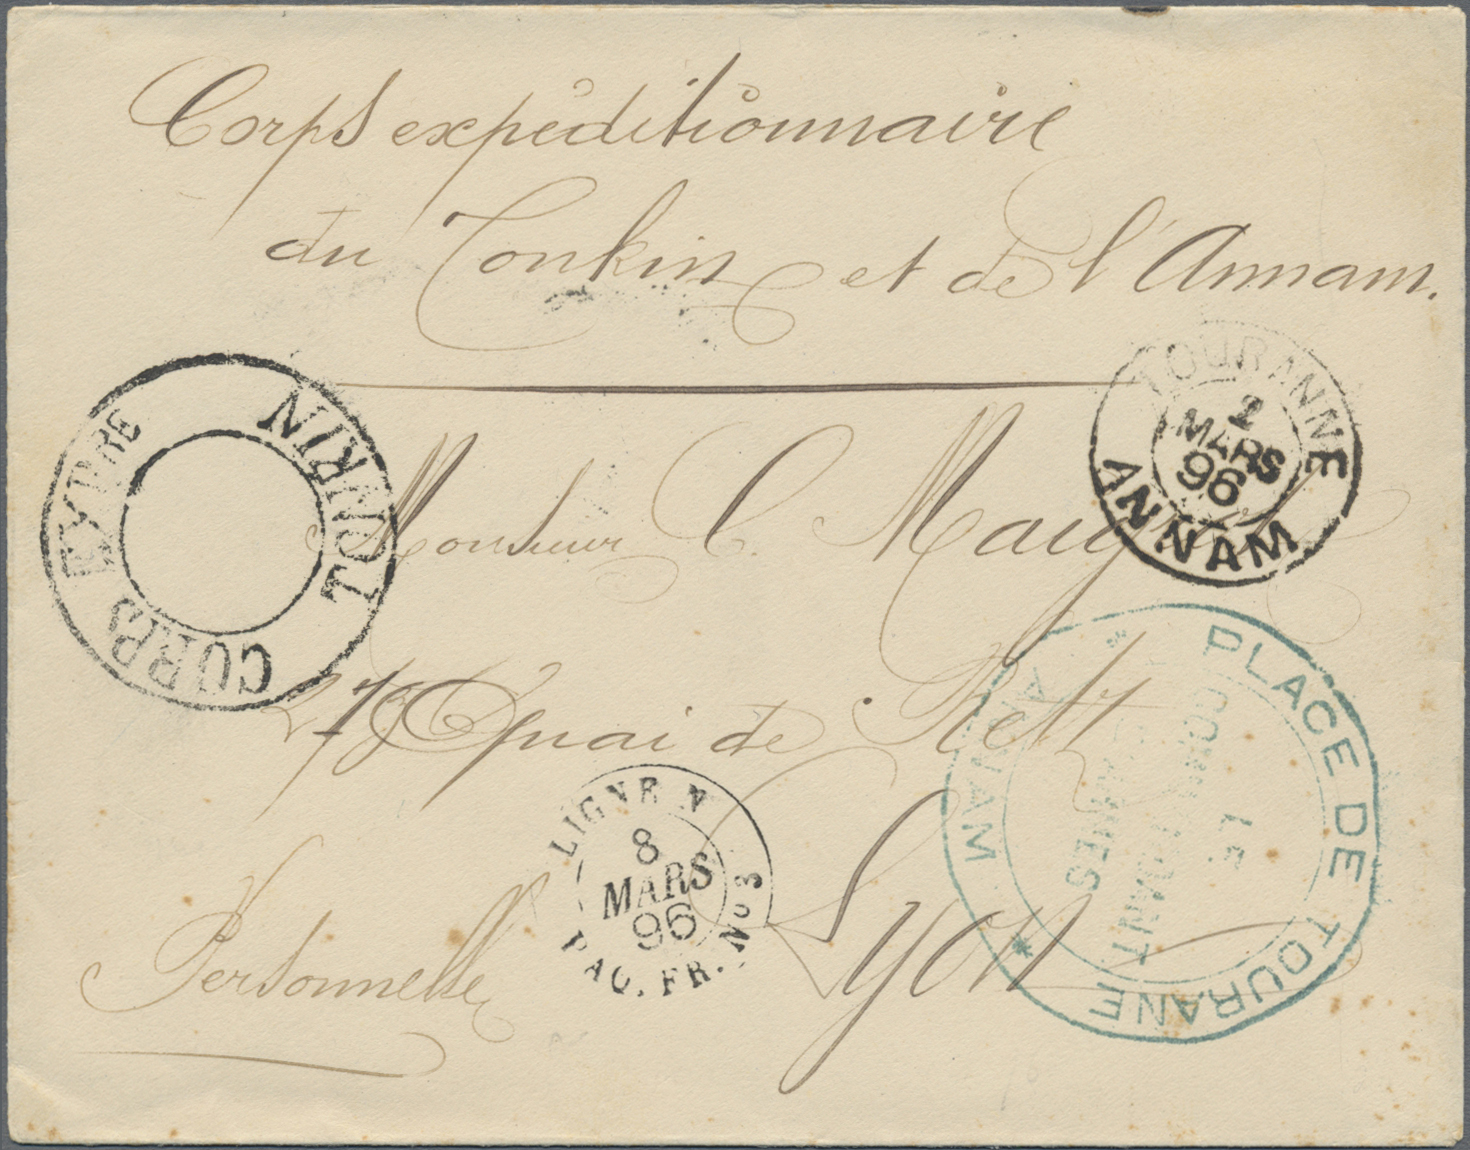 Corps expéditionnaire
du Tonkin et de l'Annam.
TOURANNE
2
MARS
96
ANNAM
CORPS EXPRE
TONKIN
Monsieur C.
Quai de Retz
PLACE DE TOURANE
* ANNAM *
LE
LIGNE N
8
MARS
96
PAQ. FR. No 3
Lyon
Personnelle